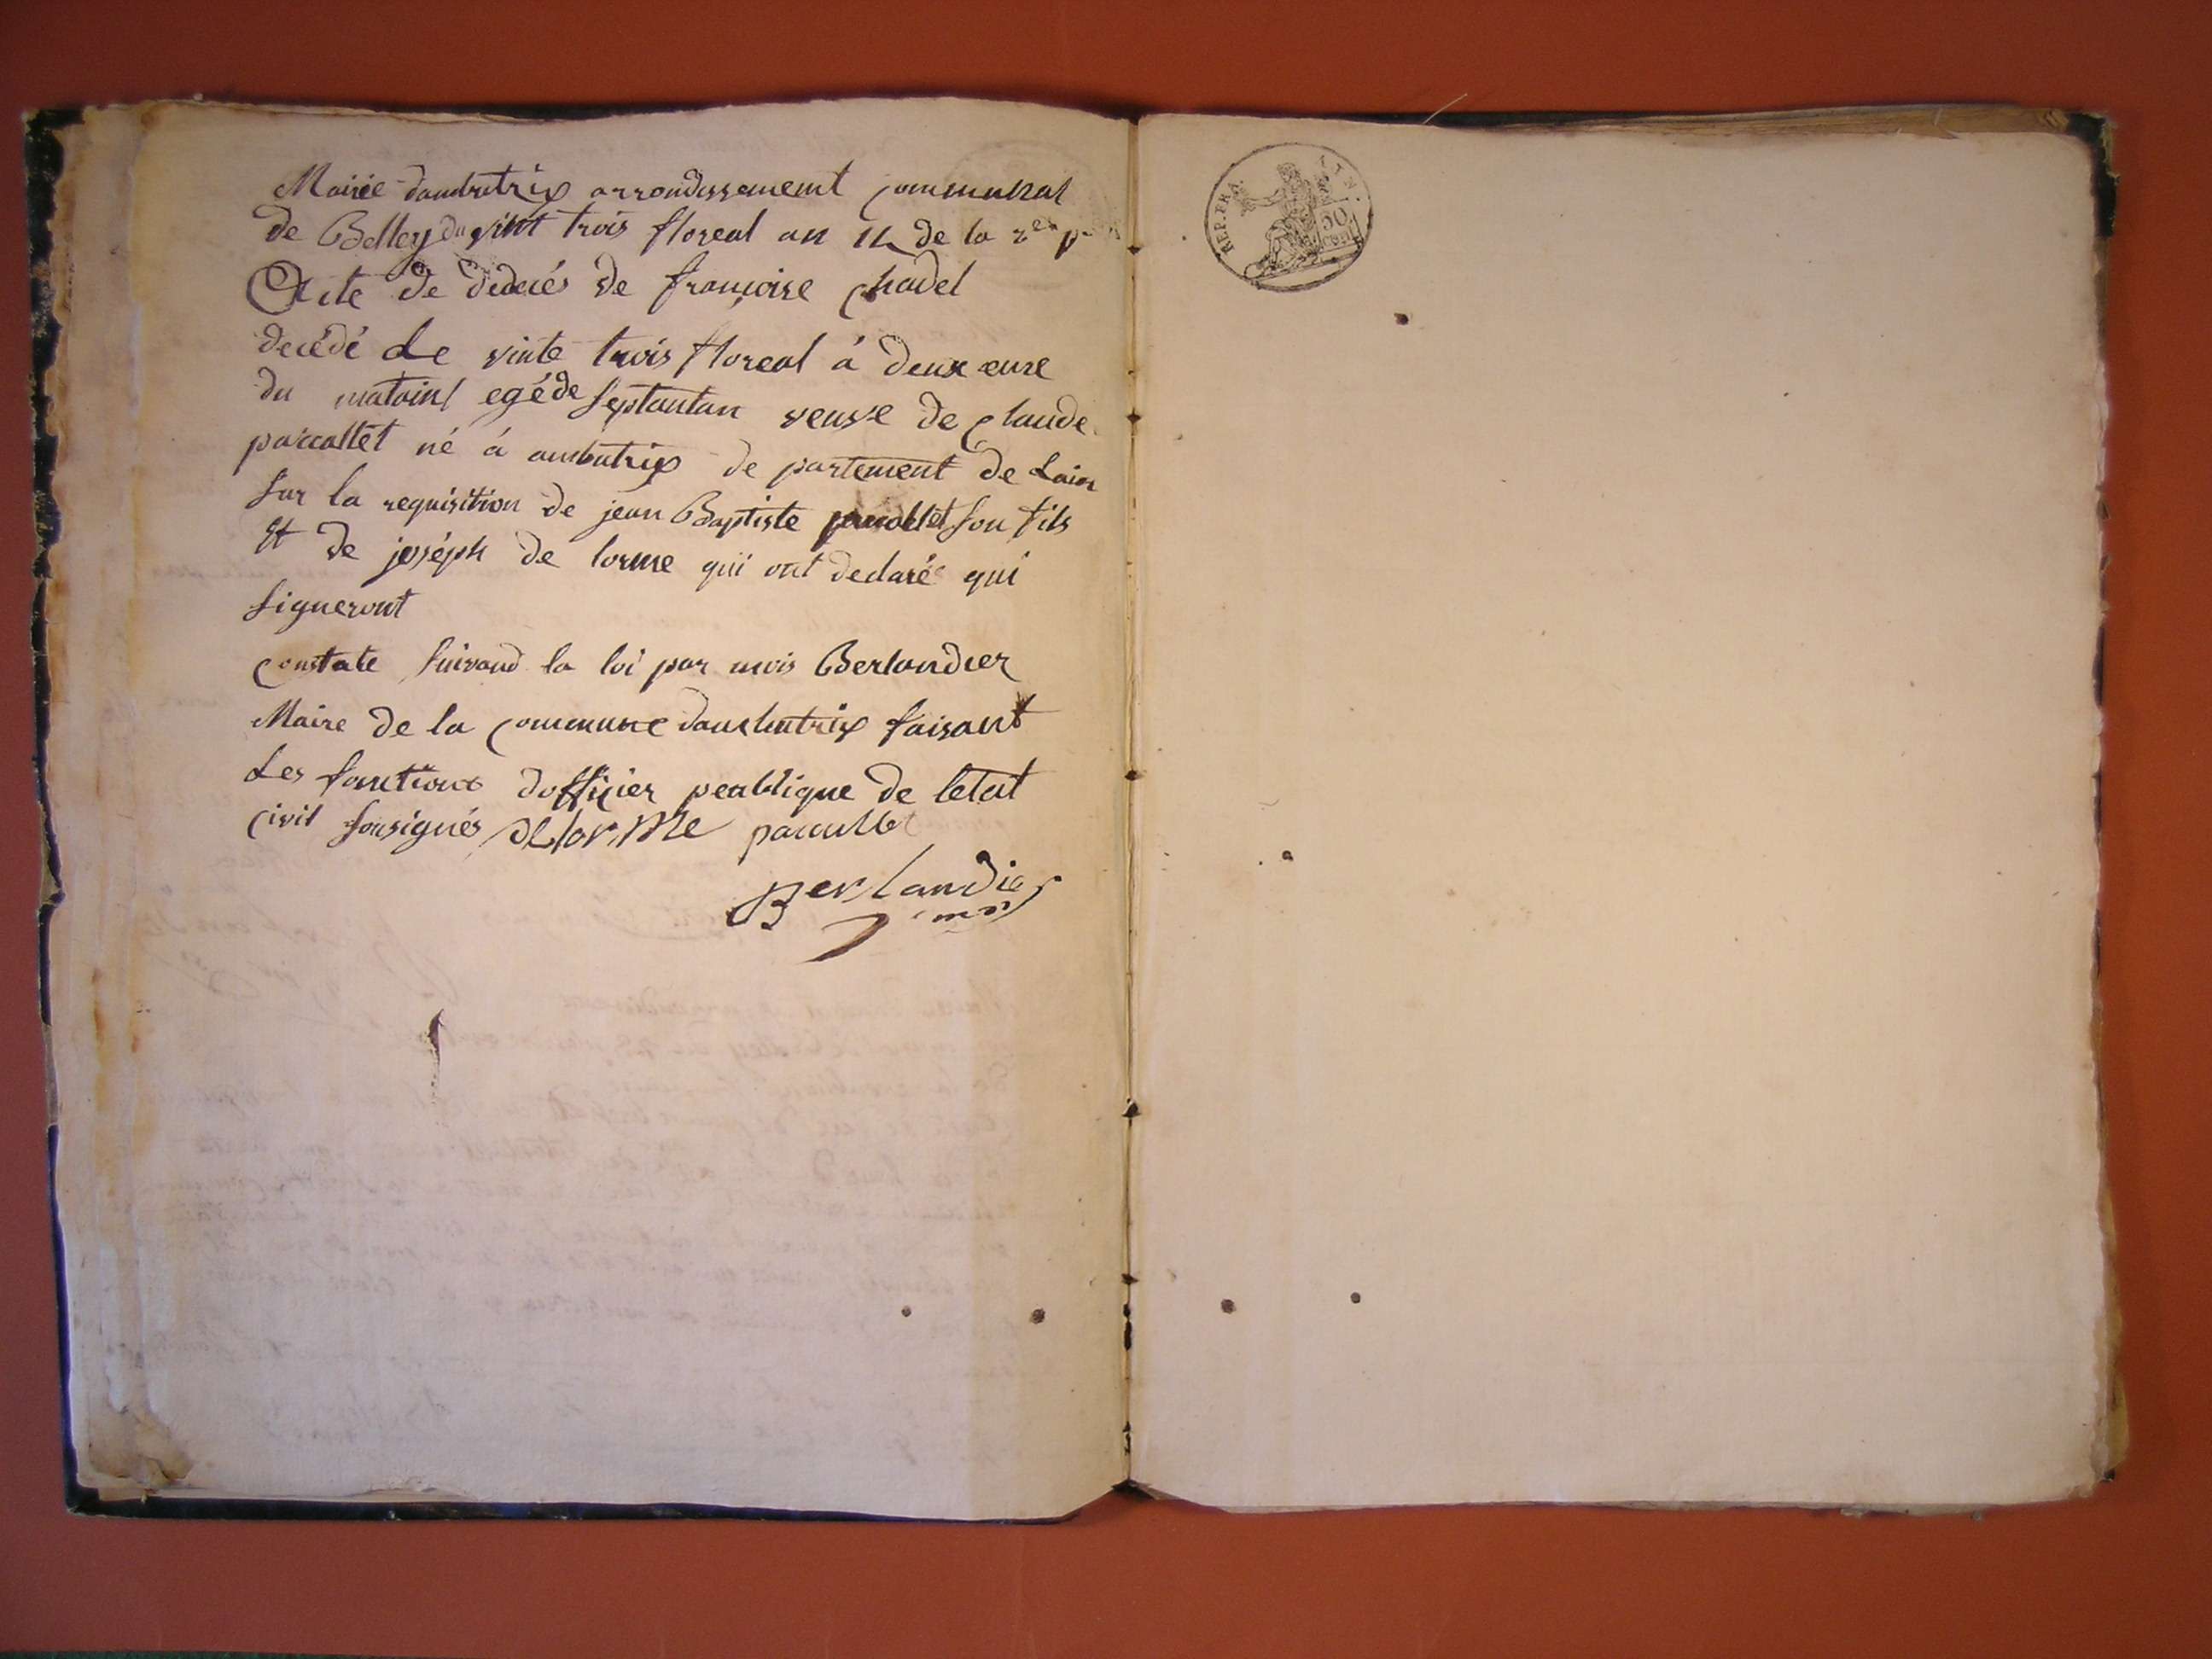 Mairie dambutrix arrondissement communal
de Belley du vint trois floreal an 12 de la
Acte de dédecés de françoise chadel
decédé Le vinte trois floreal à deux eure
du matoint egé de septantan veuve de claude
paccallet né à ambutrix de partement de Lain
sur la requisition de jean Baptiste paccallet son fils
Et de joséph de lorme qui ont declaré qui
signeront
constate suivand la loi par mois Berlandier
Maire de la commune dambutrix faisant
Les fonctions dofficier peablique de létat
civil sousignés delorme
Berlandier
REP. FRA.